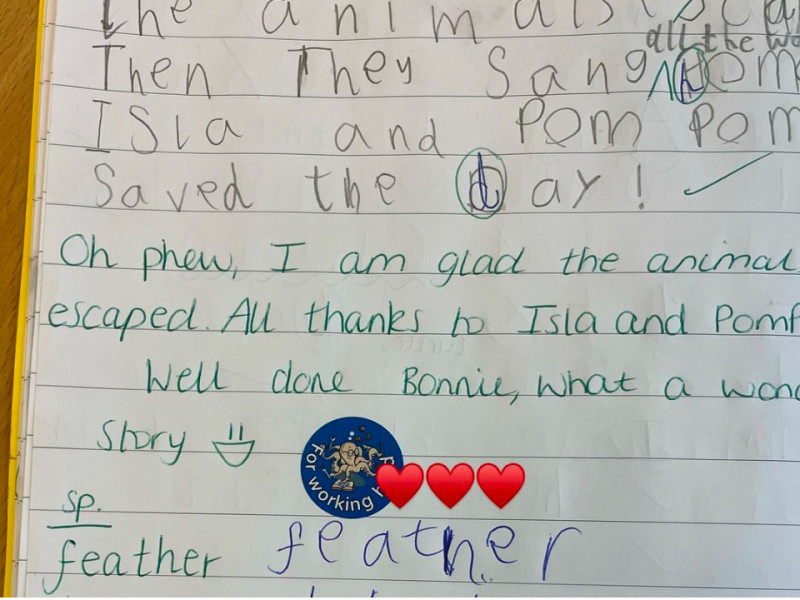 the animals
all the
Then They Sang
Isla and Pom Pom
Saved the day!
Oh phew, I am glad the animal
escaped. All thanks to Isla and
Well done Bonnie, what a
Story
For working
sp.
feather feather